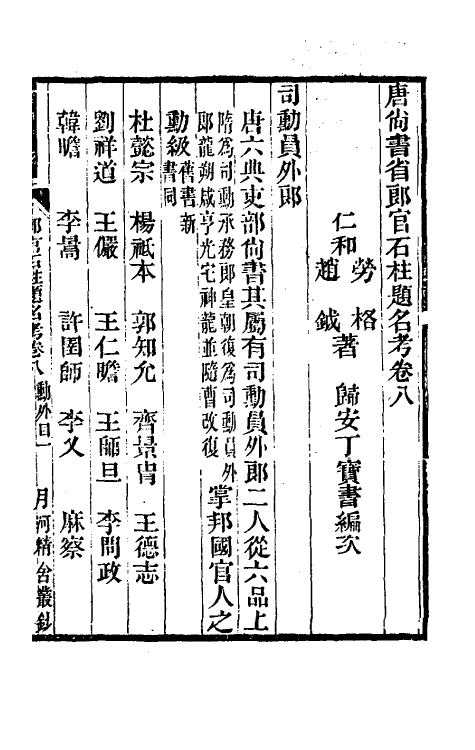 唐尙書省郎官石柱題名考卷八
仁和 勞格 趙鉞 著 歸安丁寶書編次
司勳員外郎
唐六典吏部尙書其屬有司勳員外郎二人從六品上
隋爲司勳承務郎皇朝復爲司勳員外
郎龍朔咸亨光宅神龍並隨曹改復
掌邦國官人之
勳級
舊書新
書同
杜懿宗 楊祇本 郭知允 齊景胄 王德志
劉祥道 王儼 王仁瞻 王師旦 李問政
韓瞻 李暠 許圉師 李乂 麻察
郎官石柱題名考卷八 勳外目一 月河精舍叢鈔